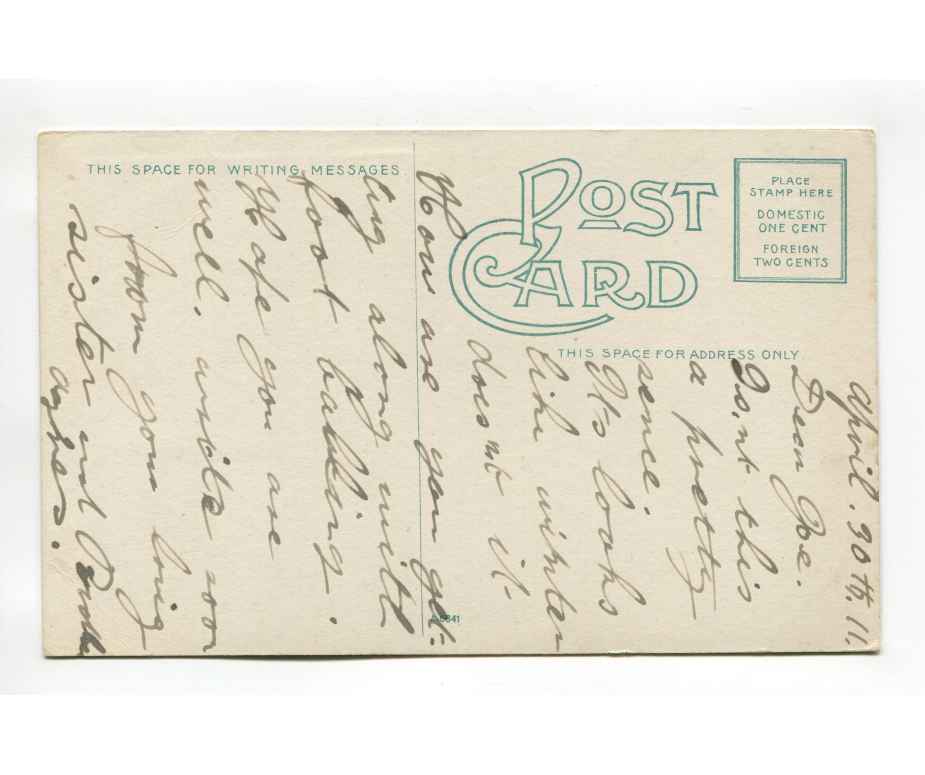 THIS SPACE FOR WRITING MESSAGES
POST
CARD
PLACE
STAMP HERE
DOMESTIC
ONE CENT
FOREIGN
TWO CENTS
THIS SPACE FOR ADDRESS ONLY.
April. 30th, 11.
Dear Joe.
Isn't this
a pretty
scenie.
Its looks
like winter
does nt it
How are you get-
ting along with
foot balling.
Hope you are
well. write soon
from your loving
sister and